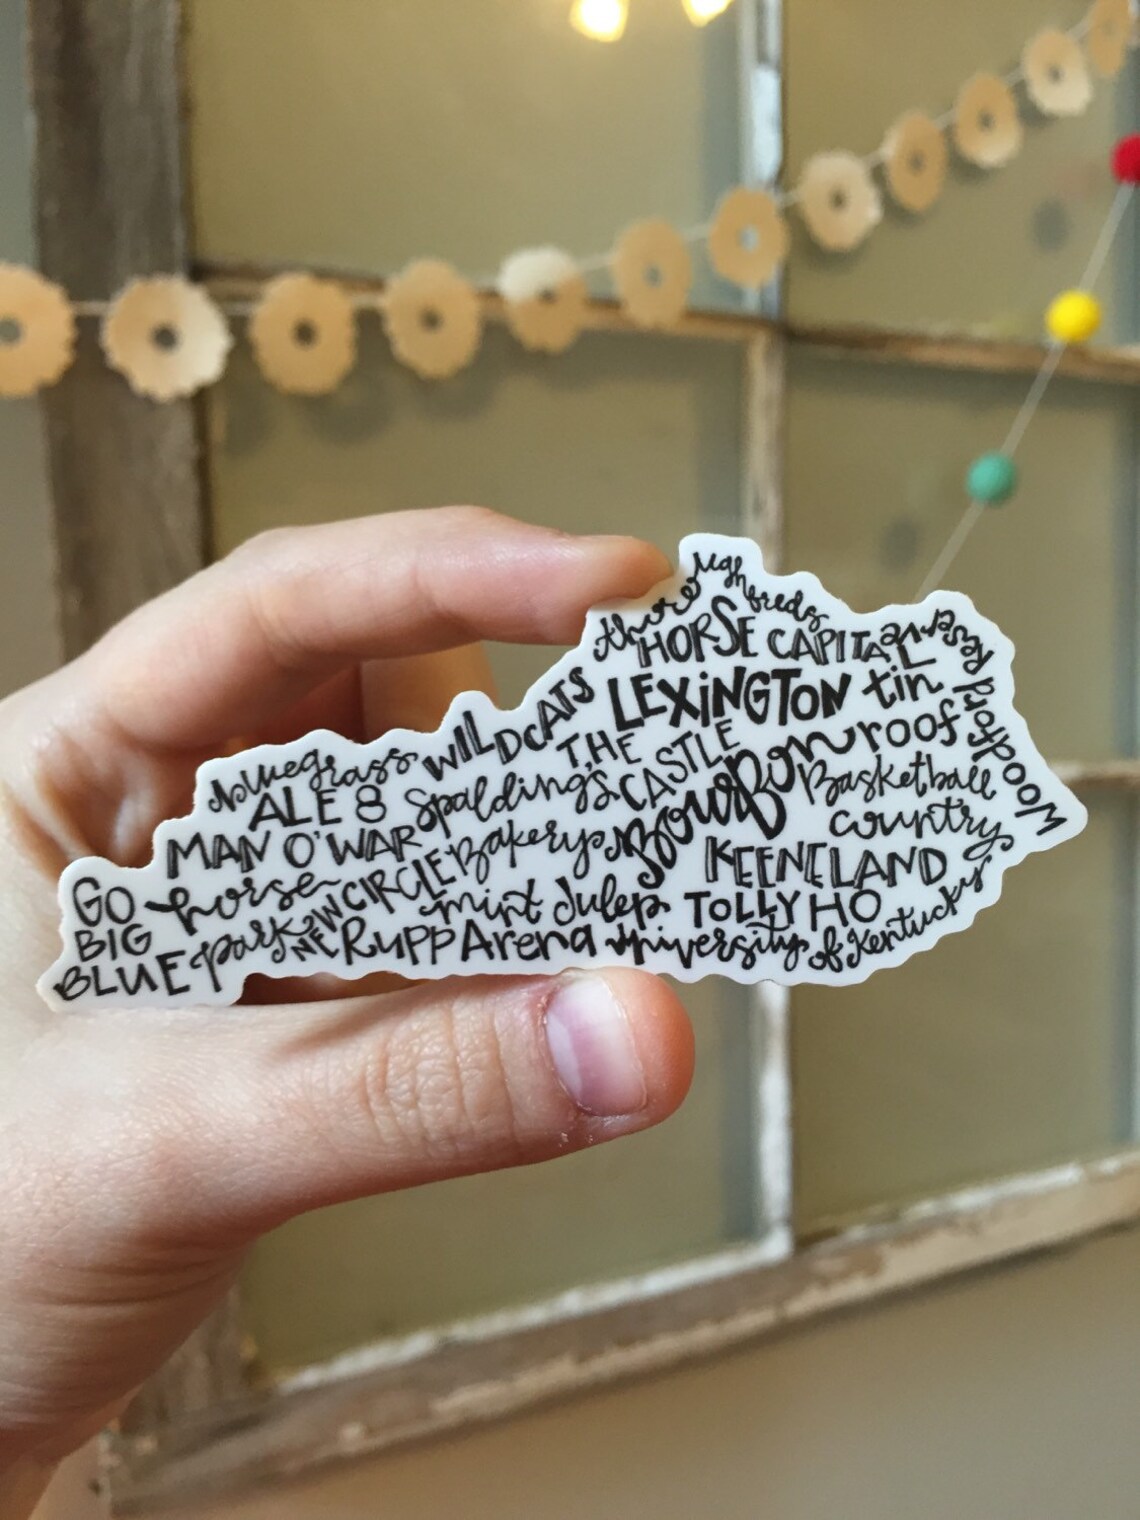 thoroughbreds
HORSE CAPITAL
LEXINGTON
tin
roof
Woodford Reserve
WILDCATS
THE
CASTLE
bluegrass
ALE 8
Spalding's
Bakery
Bourbon
Basketball
country
MAN O'WAR
KEENELAND
GO
BIG
BLUE
horse
park
NEW CIRCLE
mint Julep
TOLLY HO
Rupp Arena
University of Kentucky